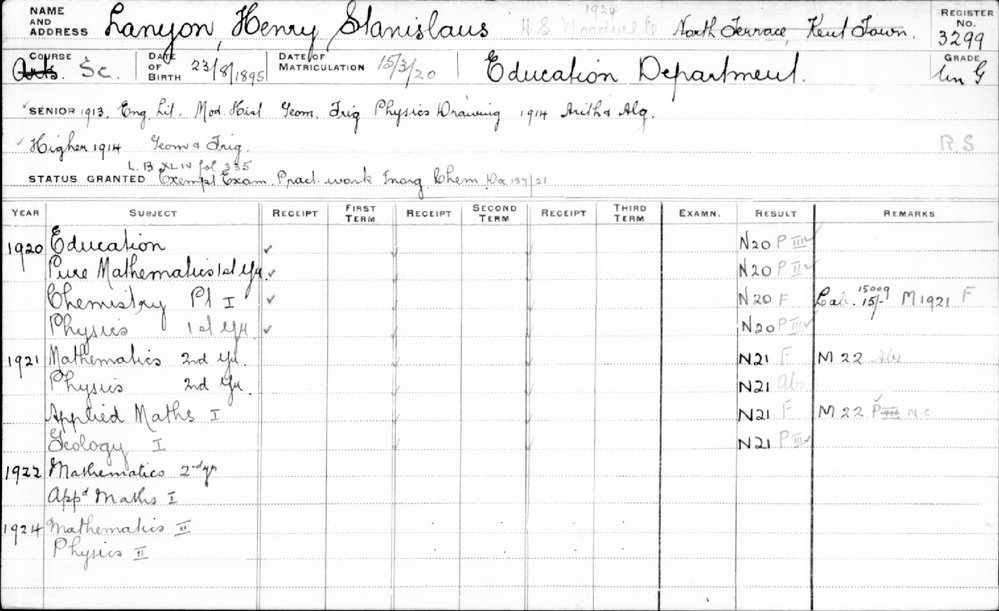 NAME AND ADDRESS Lanyon, Henry Stanislaus H S Woodville 1924 North Terrace, Kent Town. REGISTER No. 3299
COURSE Arts. Sc. DATE OF BIRTH 23/8/1895 DATE OF MATRICULATION 15/3/20 Education Department. GRADE Un G
SENIOR 1913. Eng. Lit. Mod. Hist Geom. Trig Physics Drawing 1914 Arith & Alg.
Higher 1914 Geom & Trig. R S
L. B XLIV fol 335
STATUS GRANTED Exempt Exam. Pract. work Inorg Chem. Do 187/21
YEAR SUBJECT RECEIPT FIRST TERM RECEIPT SECOND TERM RECEIPT THIRD TERM EXAMN. RESULT REMARKS
1920 Education ✓ ✓ ✓ N20 P III ✓
Pure Mathematics 1st Yr. ✓ N20 P II ✓
Chemistry Pt I ✓ ✓ ✓ N20 F Lab. 15009 15/- M 1921 F
Physics 1st Yr ✓ ✓ ✓ N20 P III ✓
1921 Mathematics 2nd Yr. ✓ ✓ N21 F M 22 Abs
Physics 2nd Yr N21 Abs
Applied Maths I ✓ ✓ N21 F M 22 P III N.C
Geology I ✓ ✓ N21 P III ✓
1922 Mathematics 2nd yr
Appd Maths I
1924 Mathematics II
Physics II